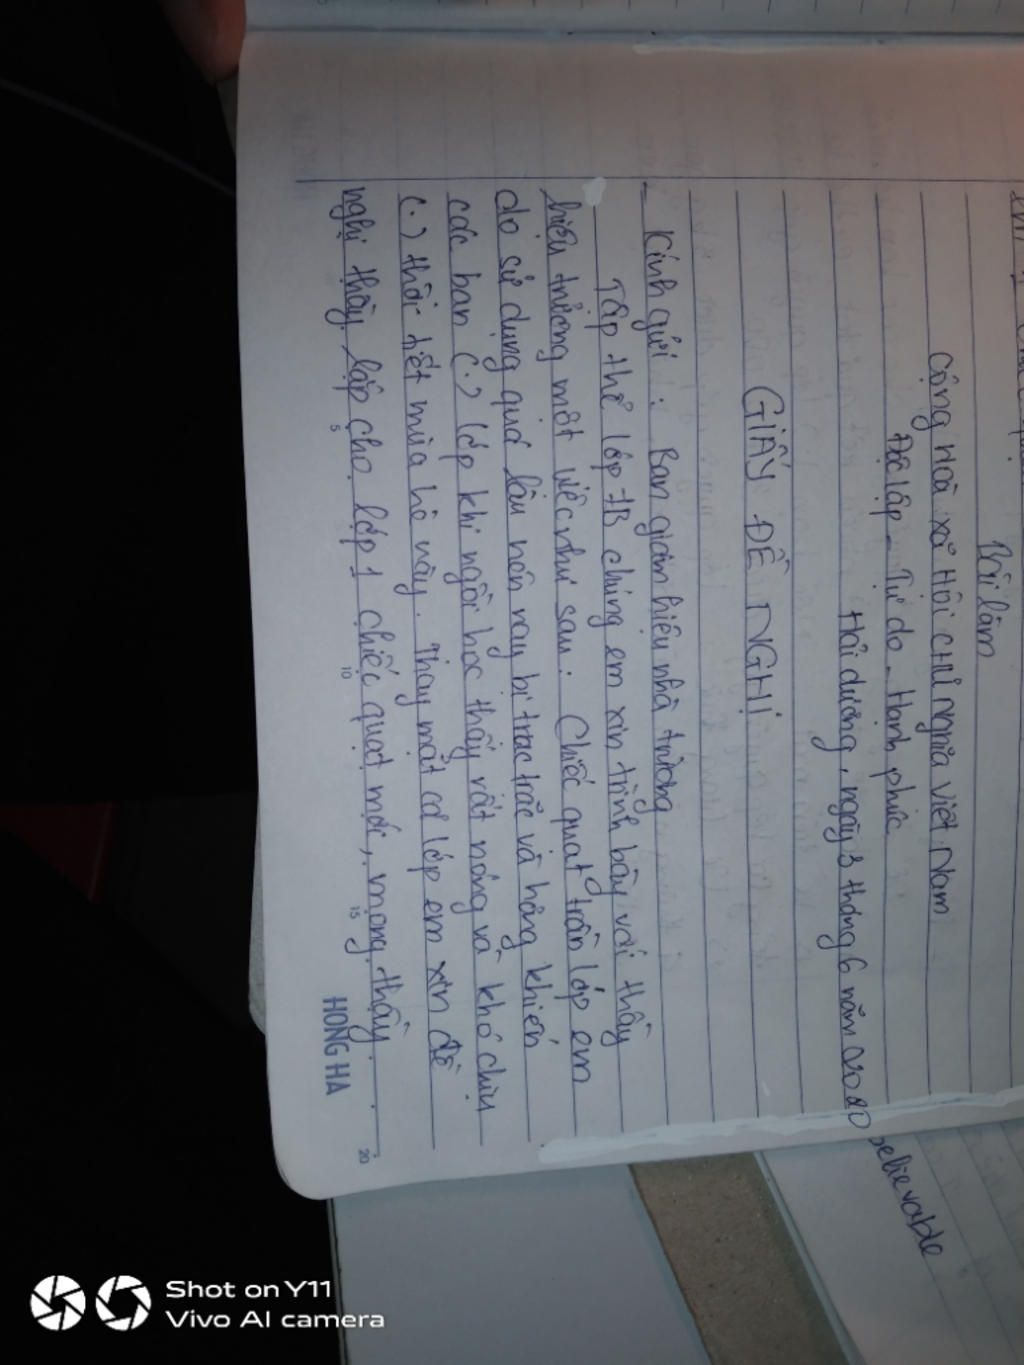 Bài làm
Cộng Hoà xã Hội Chủ Nghĩa Việt Nam
Độc lập - Tự do - Hạnh phúc
Hải dương, ngày 3 tháng 6 năm 2020
GIẤY ĐỀ NGHỊ
- Kính gửi : Ban giám hiệu nhà trường
Tập thể lớp 7B chúng em xin trình bày với thầy
hiệu trưởng một việc như sau: Chiếc quạt trần lớp em
do sử dụng quá lâu nên nay bị trục trặc và hỏng khiến
các bạn (.) lớp khi ngồi học thấy rất nóng và khó chịu
(.) thời tiết mùa hè này. Thay mặt cả lớp em xin đề
nghị thầy lắp cho lớp 1 chiếc quạt mới, mong thầy.
5
10
15
20
HONG HA
believable
Shot on Y11
Vivo AI camera